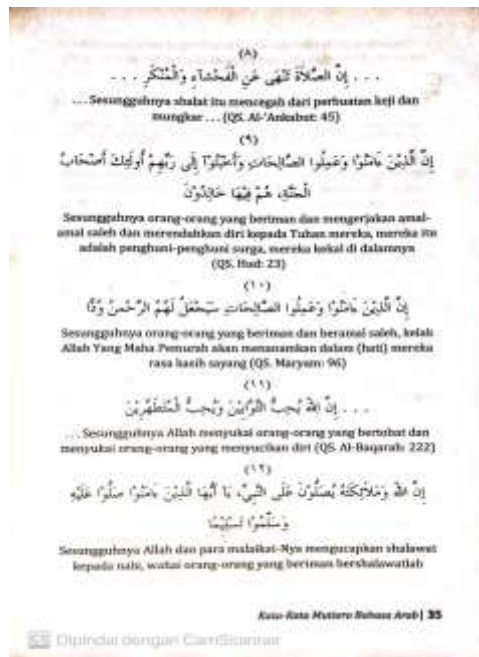 (٨)
. . . إِنَّ الصَّلَاةَ تَنْهَى عَنِ الْفَحْشَاءِ وَالْمُنْكَرِ . . .
. . . Sesungguhnya shalat itu mencegah dari perbuatan keji dan
mungkar . . . (QS. Al-'Ankabut: 45)
(٩)
إِنَّ الَّذِيْنَ ءَامَنُوْا وَعَمِلُوا الصَّالِحَاتِ وَأَخْبَتُوْآ إِلَى رَبِّهِمْ أُولَئِكَ أَصْحَابُ
الْجَنَّةِ، هُمْ فِيْهَا خَالِدُوْنَ
Sesungguhnya orang-orang yang beriman dan mengerjakan amal-
amal saleh dan merendahkan diri kepada Tuhan mereka, mereka itu
adalah penghuni-penghuni surga, mereka kekal di dalamnya
(QS. Hud: 23)
(١٠)
إِنَّ الَّذِيْنَ ءَامَنُوْا وَعَمِلُوا الصَّالِحَاتِ سَيَجْعَلُ لَهُمُ الرَّحْمَنُ وُدًّا
Sesungguhnya orang-orang yang beriman dan beramal saleh, kelak
Allah Yang Maha Pemurah akan menanamkan dalam (hati) mereka
rasa kasih sayang (QS. Maryam: 96)
(١١)
. . . إِنَّ اللهَ يُحِبُّ التَّوَّابِيْنَ وَيُحِبُّ الْمُتَطَهِّرِيْنَ
. . . Sesungguhnya Allah menyukai orang-orang yang bertobat dan
menyukai orang-orang yang menyucikan diri (QS. Al-Baqarah: 222)
(١٢)
إِنَّ اللهَ وَمَلَائِكَتَهُ يُصَلُّوْنَ عَلَى النَّبِيِّ، يَا أَيُّهَا الَّذِيْنَ ءَامَنُوْا صَلُّوْا عَلَيْهِ
وَسَلِّمُوْا تَسْلِيْمًا
Sesungguhnya Allah dan para malaikat-Nya mengucapkan shalawat
kepada nabi, wahai orang-orang yang beriman bershalawatlah
Kata-Kata Mutiara Bahasa Arab | 35
CS Dipindai dengan CamScanner